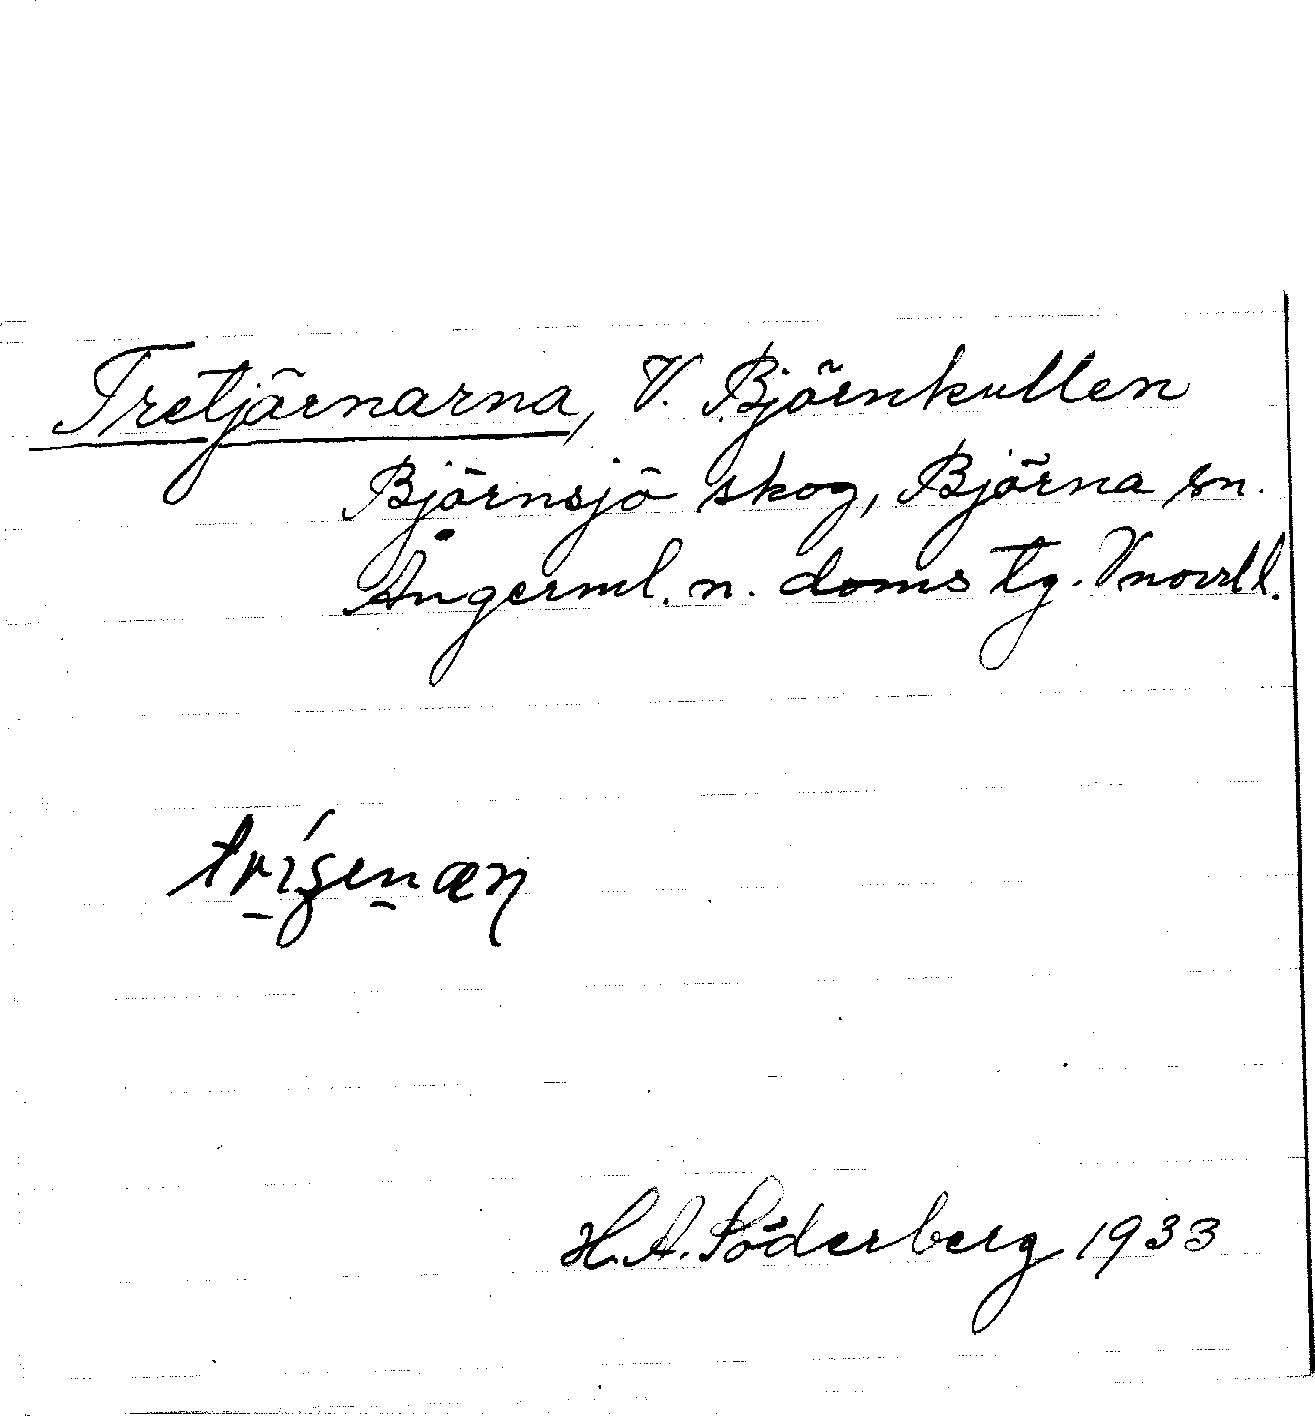 Tretjärnarna, V. Björnkullen
Björnsjö skog, Björna sn.
Ångerml. n. doms tg. Vnorrl l.
H. A. Söderberg 1933